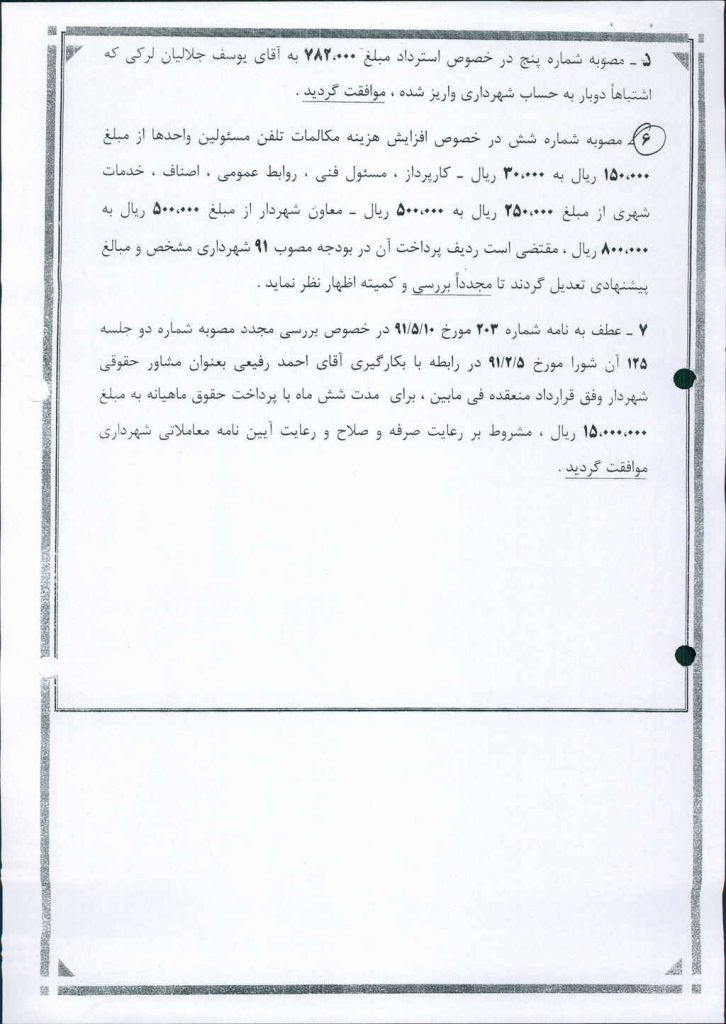 ۵ ـ مصوبه شماره پنج در خصوص استرداد مبلغ ۷۸۲،۰۰۰ به آقای یوسف جلالیان لرکی که
اشتباهاً دوبار به حساب شهرداری واریز شده ، موافقت گردید .
۶ـ مصوبه شماره شش در خصوص افزایش هزینه مکالمات تلفن مسئولین واحدها از مبلغ
۱۵۰،۰۰۰ ریال به ۳۰،۰۰۰ ریال ـ کارپرداز ، مسئول فنی ، روابط عمومی ، اصناف ، خدمات
شهری از مبلغ ۲۵۰،۰۰۰ ریال به ۵۰۰،۰۰۰ ریال ـ معاون شهردار از مبلغ ۵۰۰،۰۰۰ ریال به
۸۰۰،۰۰۰ ریال ، مقتضی است ردیف پرداخت آن در بودجه مصوب ۹۱ شهرداری مشخص و مبالغ
پیشنهادی تعدیل گردند تا مجدداً بررسی و کمیته اظهار نظر نماید .
۷ ـ عطف به نامه شماره ۲۰۳ مورخ ۹۱/۵/۱۰ در خصوص بررسی مجدد مصوبه شماره دو جلسه
۱۲۵ آن شورا مورخ ۹۱/۲/۵ در رابطه با بکارگیری آقای احمد رفیعی بعنوان مشاور حقوقی
شهردار وفق قرارداد منعقده فی مابین ، برای مدت شش ماه با پرداخت حقوق ماهیانه به مبلغ
۱۵،۰۰۰،۰۰۰ ریال ، مشروط بر رعایت صرفه و صلاح و رعایت آیین نامه معاملاتی شهرداری
موافقت گردید .